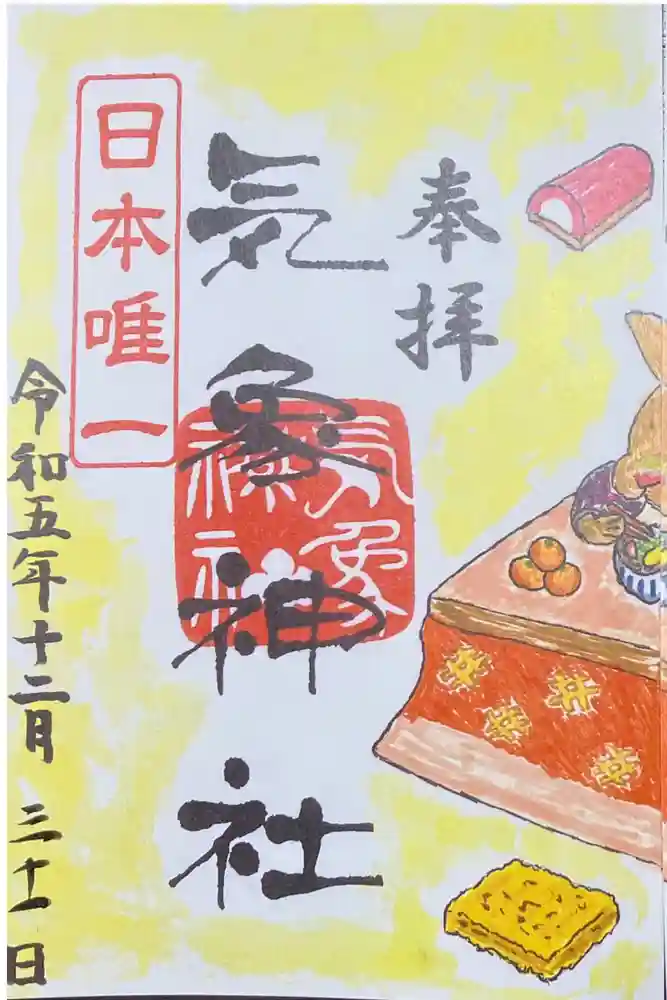 奉拝
気象神社
気象神社
日本唯一
令和五年十二月三十一日